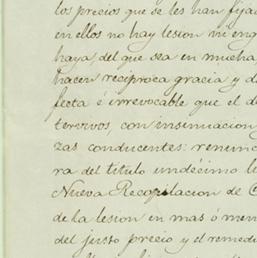 los precios que se les han fija
en ellos no hay lesion ni eng
haya, del que sea en mucha
hacen reciproca gracia y d
fecta é irrevocable que el d
tervivos, con insinuacion
zas conducentes: renunc
ra del titulo undécimo li
Nueva Recopilacion de C
de la lesion en mas ó men
del justo precio y el remedi